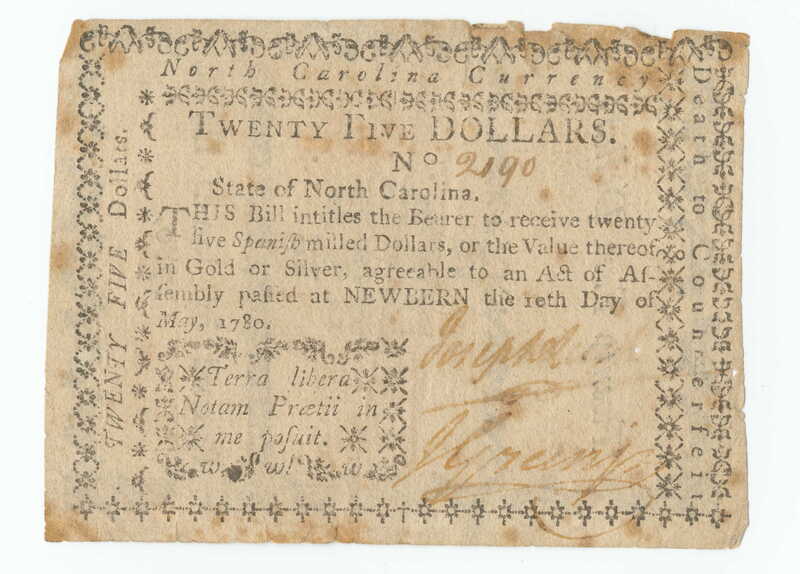 North Carolina Currency
TWENTY FIVE DOLLARS.
No 2190
State of North Carolina.
THIS Bill intitles the Bearer to receive twenty
five Spaniſh milled Dollars, or the Value thereof
in Gold or Silver, agreeable to an Act of Aſ-
ſembly paſſed at NEWBERN the 10th Day of
May, 1780.
Terra libera
Notam Prætii in
me poſuit.
TWENTY FIVE Dollars.
Death to Counterfeit
J Green